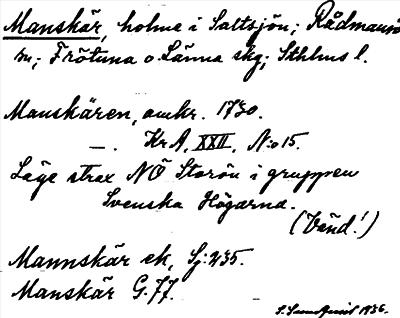 Manskär, holme i Saltsjön; Rådmansö
sn; Frötuna o. Länna skg; Sthlms l.
Manskären, omkr. 1730.
—. KrA, XXII, N:o 15.
Läge strax NÖ Storön i gruppen
Svenska Högarna.
(Vänd!)
Mannskär ek, Sj: 235.
Manskär G. 77.
1936.